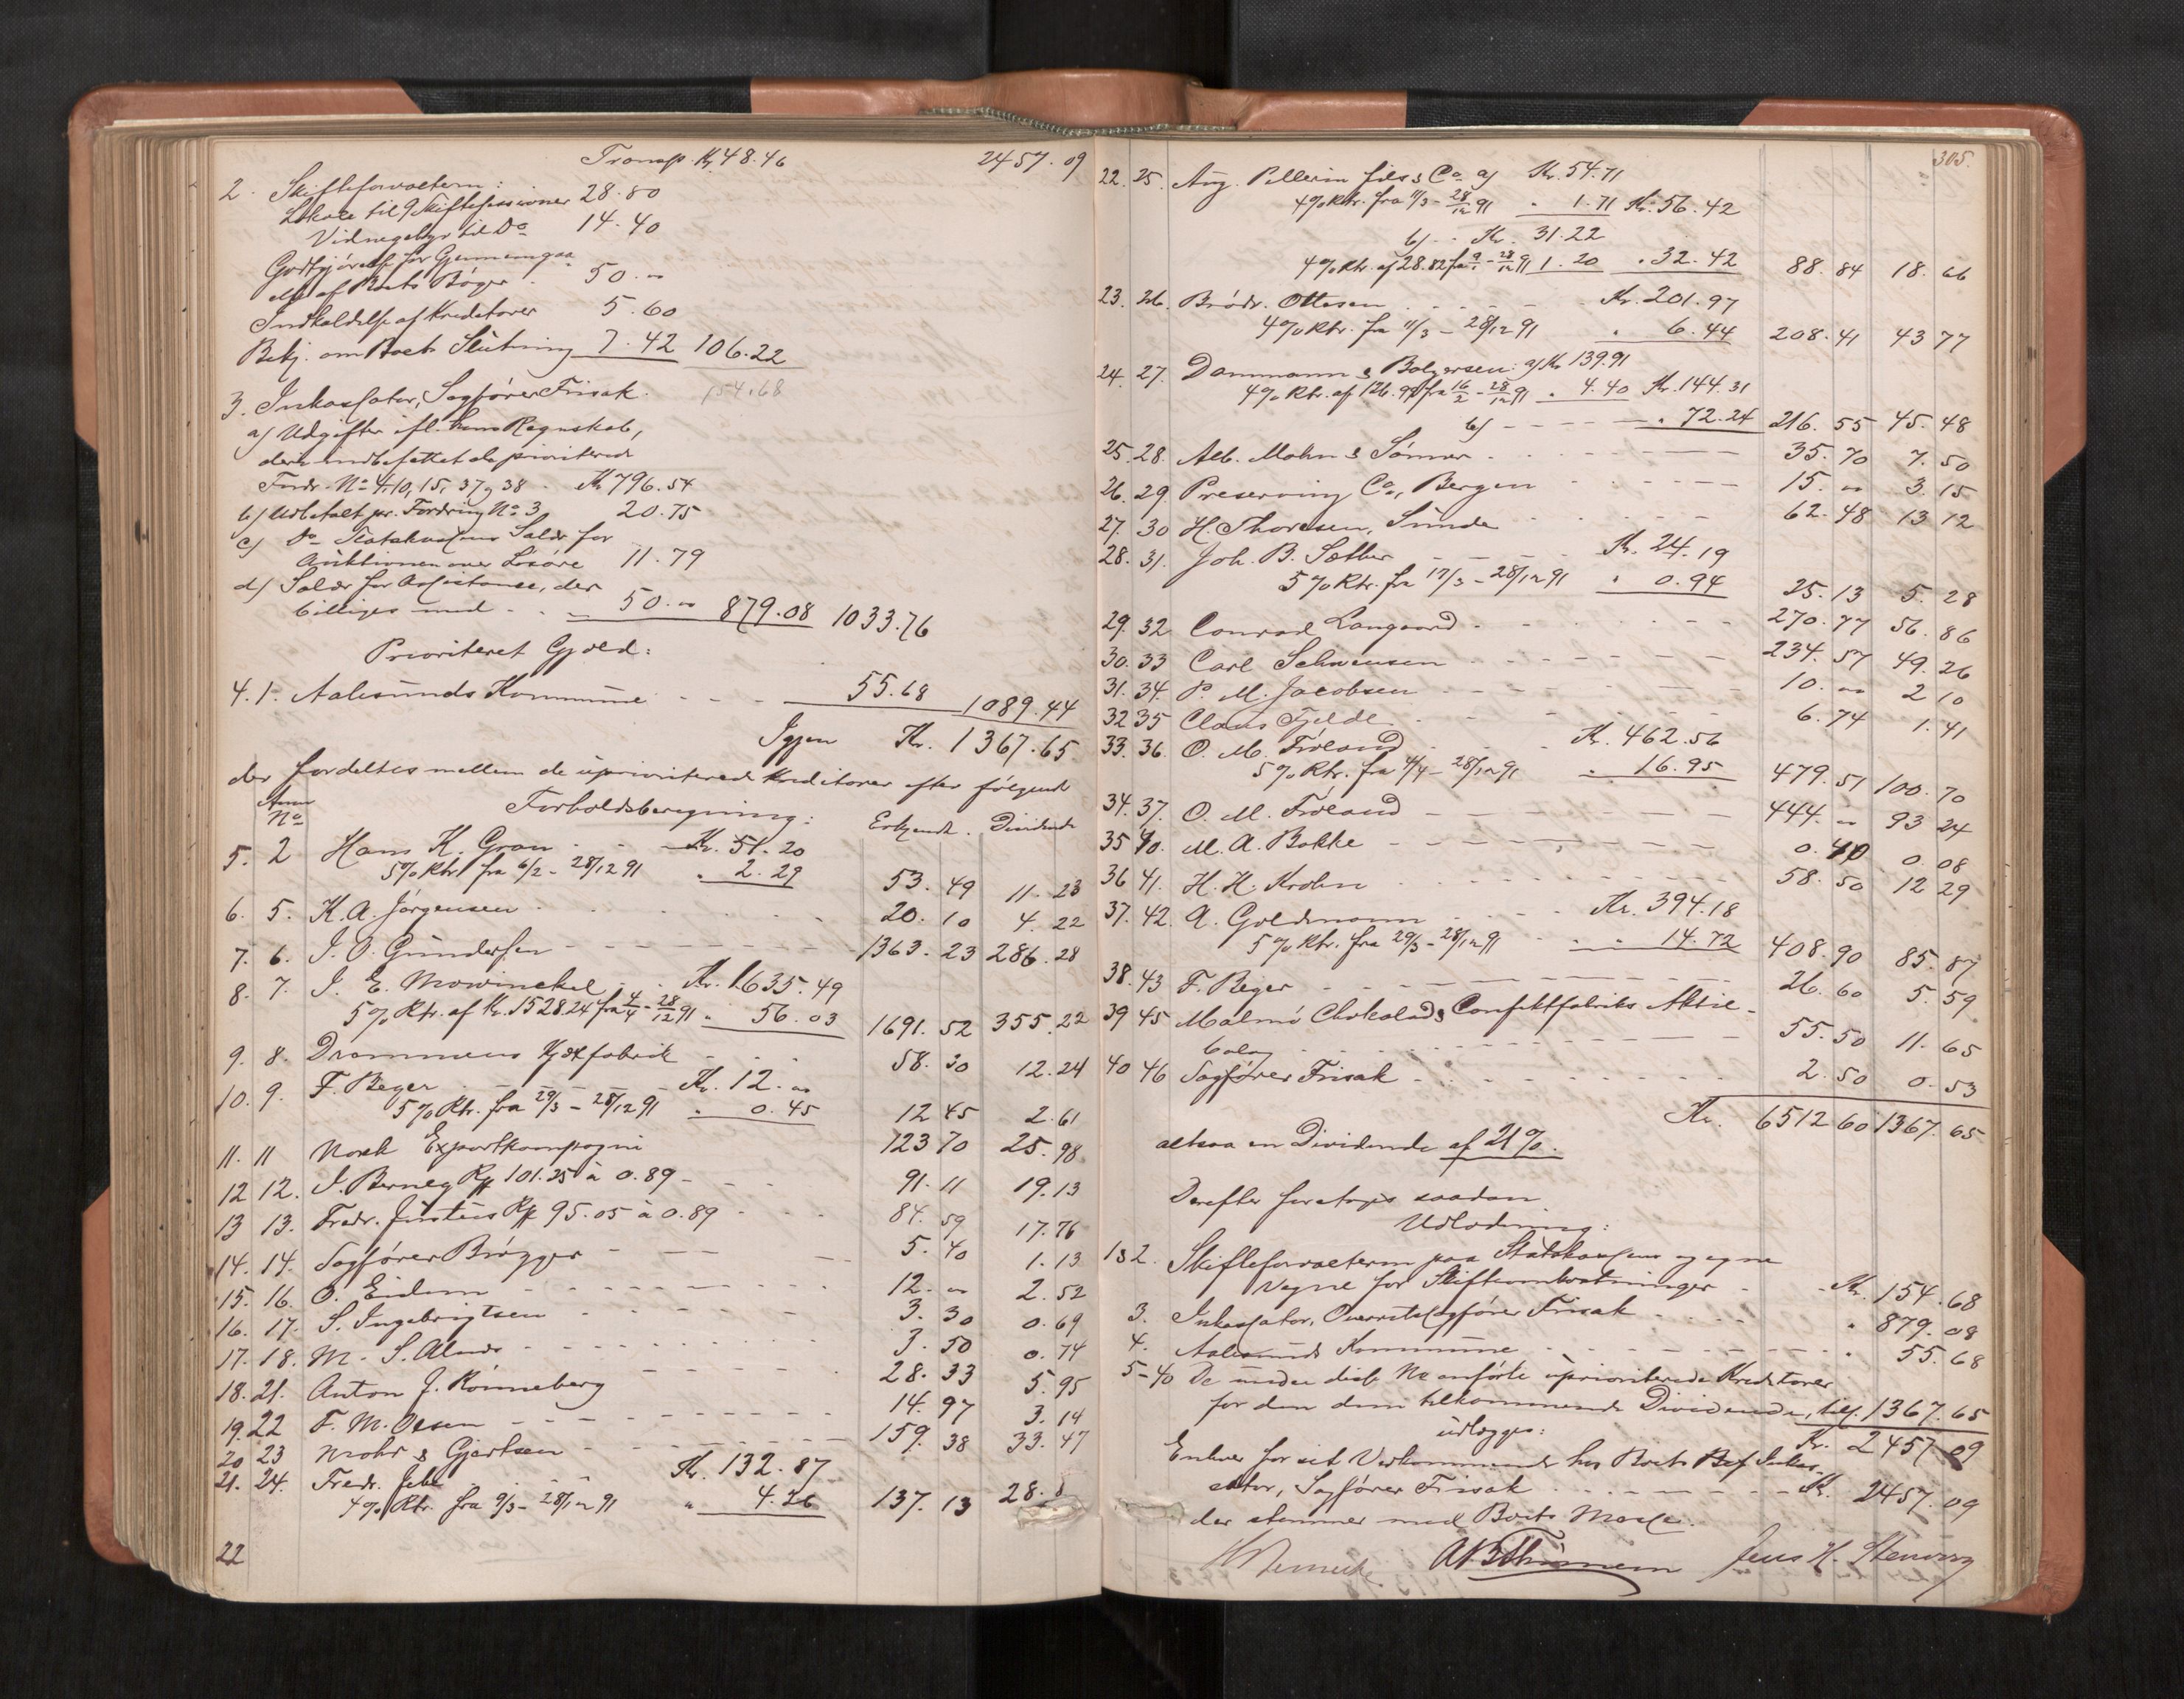 Transp. Kr. 48.46 2457.09
2. Skifteforvalteren:
Lokale til 9 Skiftesessioner 28.80
Vidnegebyr til Do 14.40
Godtgjørelse for Gjennemgaa-
else af Boets Bøger 50.„
Indkaldelse af Kreditorer 5.60
Bekj. om Boets Slutning 7.42 106.22
154.68
3. Inkassator, Sagfører Frisak.
a) Udgifter ifl. hans Regnskab,
deri indbefattet de prioriterede
Fordr. No 4, 10, 15, 37 og 38 - Kr. 796.54
b) Udbetalt pr. Fordring No 3 20.75
c) Do Statskassens Salær for
Auktionen over Løsøre 11.79
d) Salær for Assistance, der
billiges med - - 50.„ 879.08 1033.76
Prioriteret Gjæld:
4. 1. Aalesunds Kommune - - 55.68 1089.44
Igjen Kr. 1367.65
der fordeltes mellem de uprioriterede Kreditorer efter følgende
Anm. No Forholdsberegning: Erkjendt. Dividende
5. 2 Hans K. Gran - - Kr. 51.20
5% Rtr. fra 6/2 - 28/12 91 „ 2.29 53.49 11.23
6. 5. K. A. Jørgensen - - 20.10 4.22
7. 6. I. O. Gundersen - - 1363.23 286.28
8. 7. I. E. Mowinckel - Kr. 1635.49
5% Rtr. af Kr. 1528.24 fra 4/4 - 28/12 91 „ 56.03 1691.52 355.22
9. 8. Drammens Kjæxfabrik - - 58.30 12.24
10. 9. F. Beyer - - Kr. 12.„
5% Rtr. fra 29/3 - 28/12 91 „ 0.45 12.45 2.61
11. 11 Norsk Exportkompagni 123.70 25.98
12 12. J. Berneg Rp 101.35 à 0.89 - - 91.11 19.13
13 13. Fredr. Justus Rp 95.05 à 0.89 - - 84.59 17.76
14. 14. Sagfører Brøgger - - 5.40 1.13
15. 16. O. Eidem - - 12.„ 2.52
16. 17. S. Ingebrigtsen - - 3.30 0.69
17. 18. M. S. Alnæs - - 3.50 0.74
18. 21. Anton J. Rønneberg - - 28.33 5.95
19. 22 F. M. Olsen - - 14.97 3.14
20 23 Mohr & Gjertsen - - 159.38 33.47
21. 24. Fredr. Jebe - - Kr. 132.87
4% Rtr. fra 9/3 - 28/12 91 „ 4.26 137.13 28.8
22
305.
22. 25. Aug. Pellerin fils & Co a) Kr. 54.71
4% Rtr. fra 11/3 - 28/12 91 „ 1.71 Kr. 56.42
b) - - Kr. 31.22
4% Rtr. af 28.82 fra - 28/12 91 1.20 „ 32.42 88.84 18.66
23. 26. Brødr. Ottesen - - Kr. 201.97
4% Rtr. fra 11/3 - 28/12 91 „ 6.44 208.41 43.77
24. 27. Dammann & Bolgersen: a) Kr. 139.91
4% Rtr. af 126.99 fra 16/2 - 28/12 91 „ 4.40 Kr. 144.31
b) - - „ 72.24 216.55 45.48
25. 28. Alb. Mohn & Sønner - - 35.70 7.50
26. 29. Preserving Co, Bergen - - 15.„ 3.15
27. 30 H. Thoresen, Sunde - - 62.48 13.12
28. 31. Joh. B. Sæther - - Kr. 24.19
5% Rtr. fra 17/3 - 28/12 91 „ 0.94 25.13 5.28
29. 32 Conrad Langaard - - 270.77 56.86
30. 33 Carl Schwensen - - 234.57 49.26
31. 34. P. M. Jacobsen - - 10.„ 2.10
32 35 Claus Fjelde - - 6.74 1.41
33. 36. O. M. Frøland - - Kr. 462.56
5% Rtr. fra 4/4 - 28/12 91 „ 16.95 479.51 100.70
34. 37. O. M. Frøland - - 444.„ 93.24
35 40. M. A. Bakke - - 0.40 0.08
36 41. H. H. Krohn - - 58.50 12.29
37. 42. A. Goldmann - - Kr. 394.18
5% Rtr. fra 29/3 - 28/12 91 „ 14.72 408.90 85.87
38. 43 F. Beyer - - 26.60 5.59
39 45 Malmö Chokolad & Confektfabriks Aktie-
bolag - - 55.50 11.65
40 46 Sagfører Frisak - - 2.50 0.53
Kr. 6512.60 1367.65
altsaa en Dividende af 21%.
Derefter foretoges saadan
Udlodning:
1 & 2. Skifteforvalteren paa Statskassens og egne
Vegne for Skifteomkostninger - - Kr. 154.68
3. Inkassator, Overretssagfører Frisak - - „ 879.08
4. Aalesunds Kommune - - „ 55.68
5-40 De under disse No anførte uprioriterede Kreditorer
for den dem tilkommende Dividende, tils. 1367.65
Kr. 2457.09
udlægges:
Enhver for sit Vedkommende hos Boets Inkas-
sator, Sagfører Frisak - - Kr. 2457.09
der stemmer med Boets Masse.
Jens H.